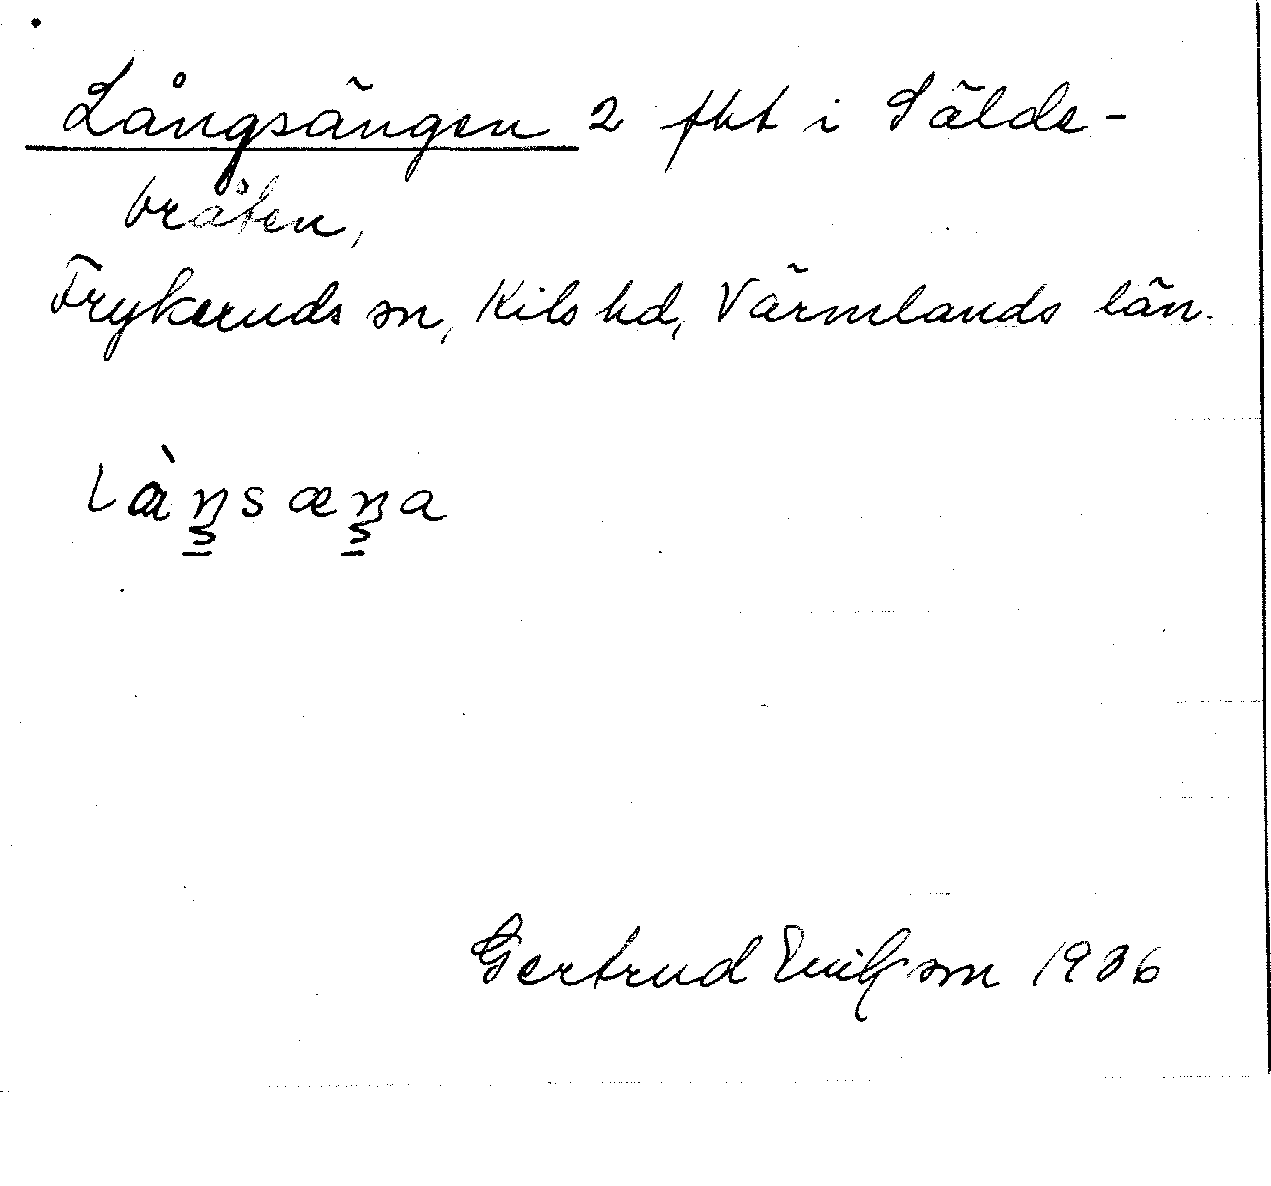 Långsängen 2 fht i Sälde-
bråten,
Frykeruds sn, Kils hd, Värmlands län.
làŋsæŋa
Gertrud 1936